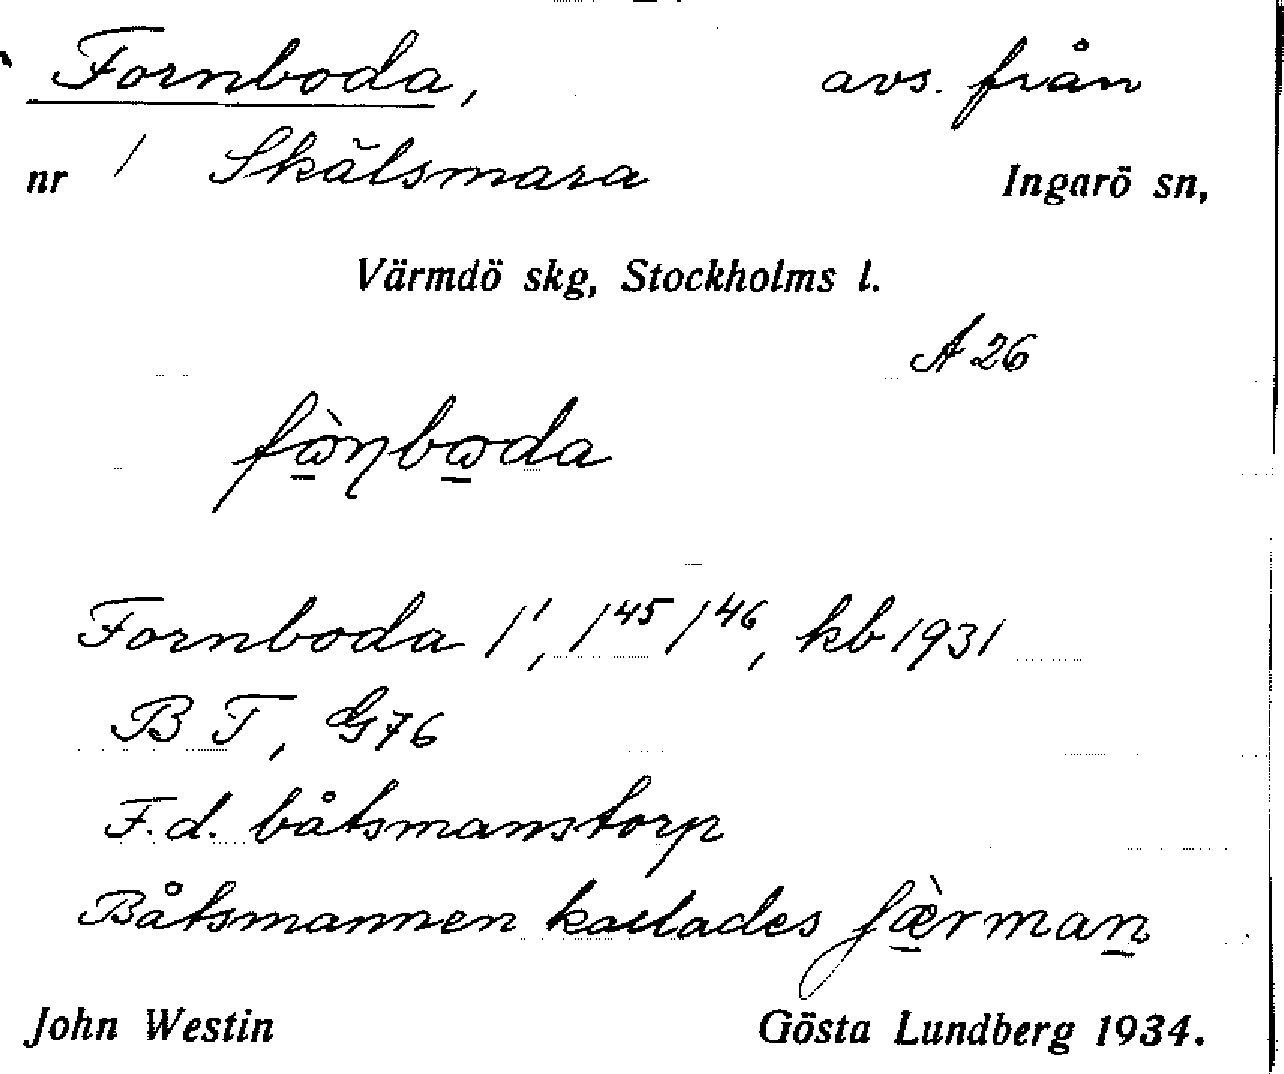 Fornboda, avs. från
nr 1 Skälsmara Ingarö sn,
Värmdö skg, Stockholms l.
A 26
fꞷ̀ɳbꞷda
Fornboda 1¹, 1⁴⁵ 1⁴⁶, kb 1931
B T, G76
F.d. båtsmanstorp
Båtsmannen kallades fæ̀rman
John Westin Gösta Lundberg 1934.